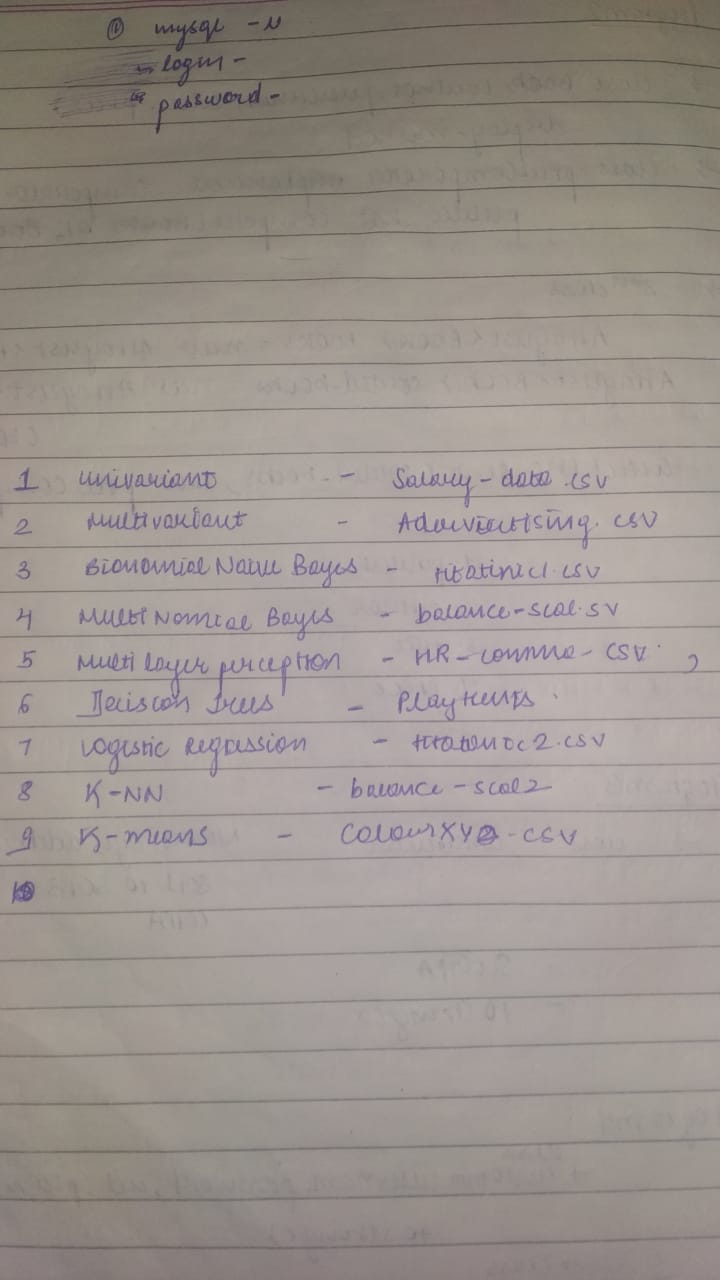 mysql - u
login -
password -
1 univariant - Salary-data.csv
2 Multivariant - Advertising.csv
3 Bionomial Naive Bayes - csv
4 Multi Nomial Bayes - balance-scal.sv
5 Multi layer perception - HR-comma-csv.
6 Decision Trees - Playtennis.
7 Logistic regression - 2.csv
8 K-NN - balance-scal2
9 K-means - ColourXY-csv
10